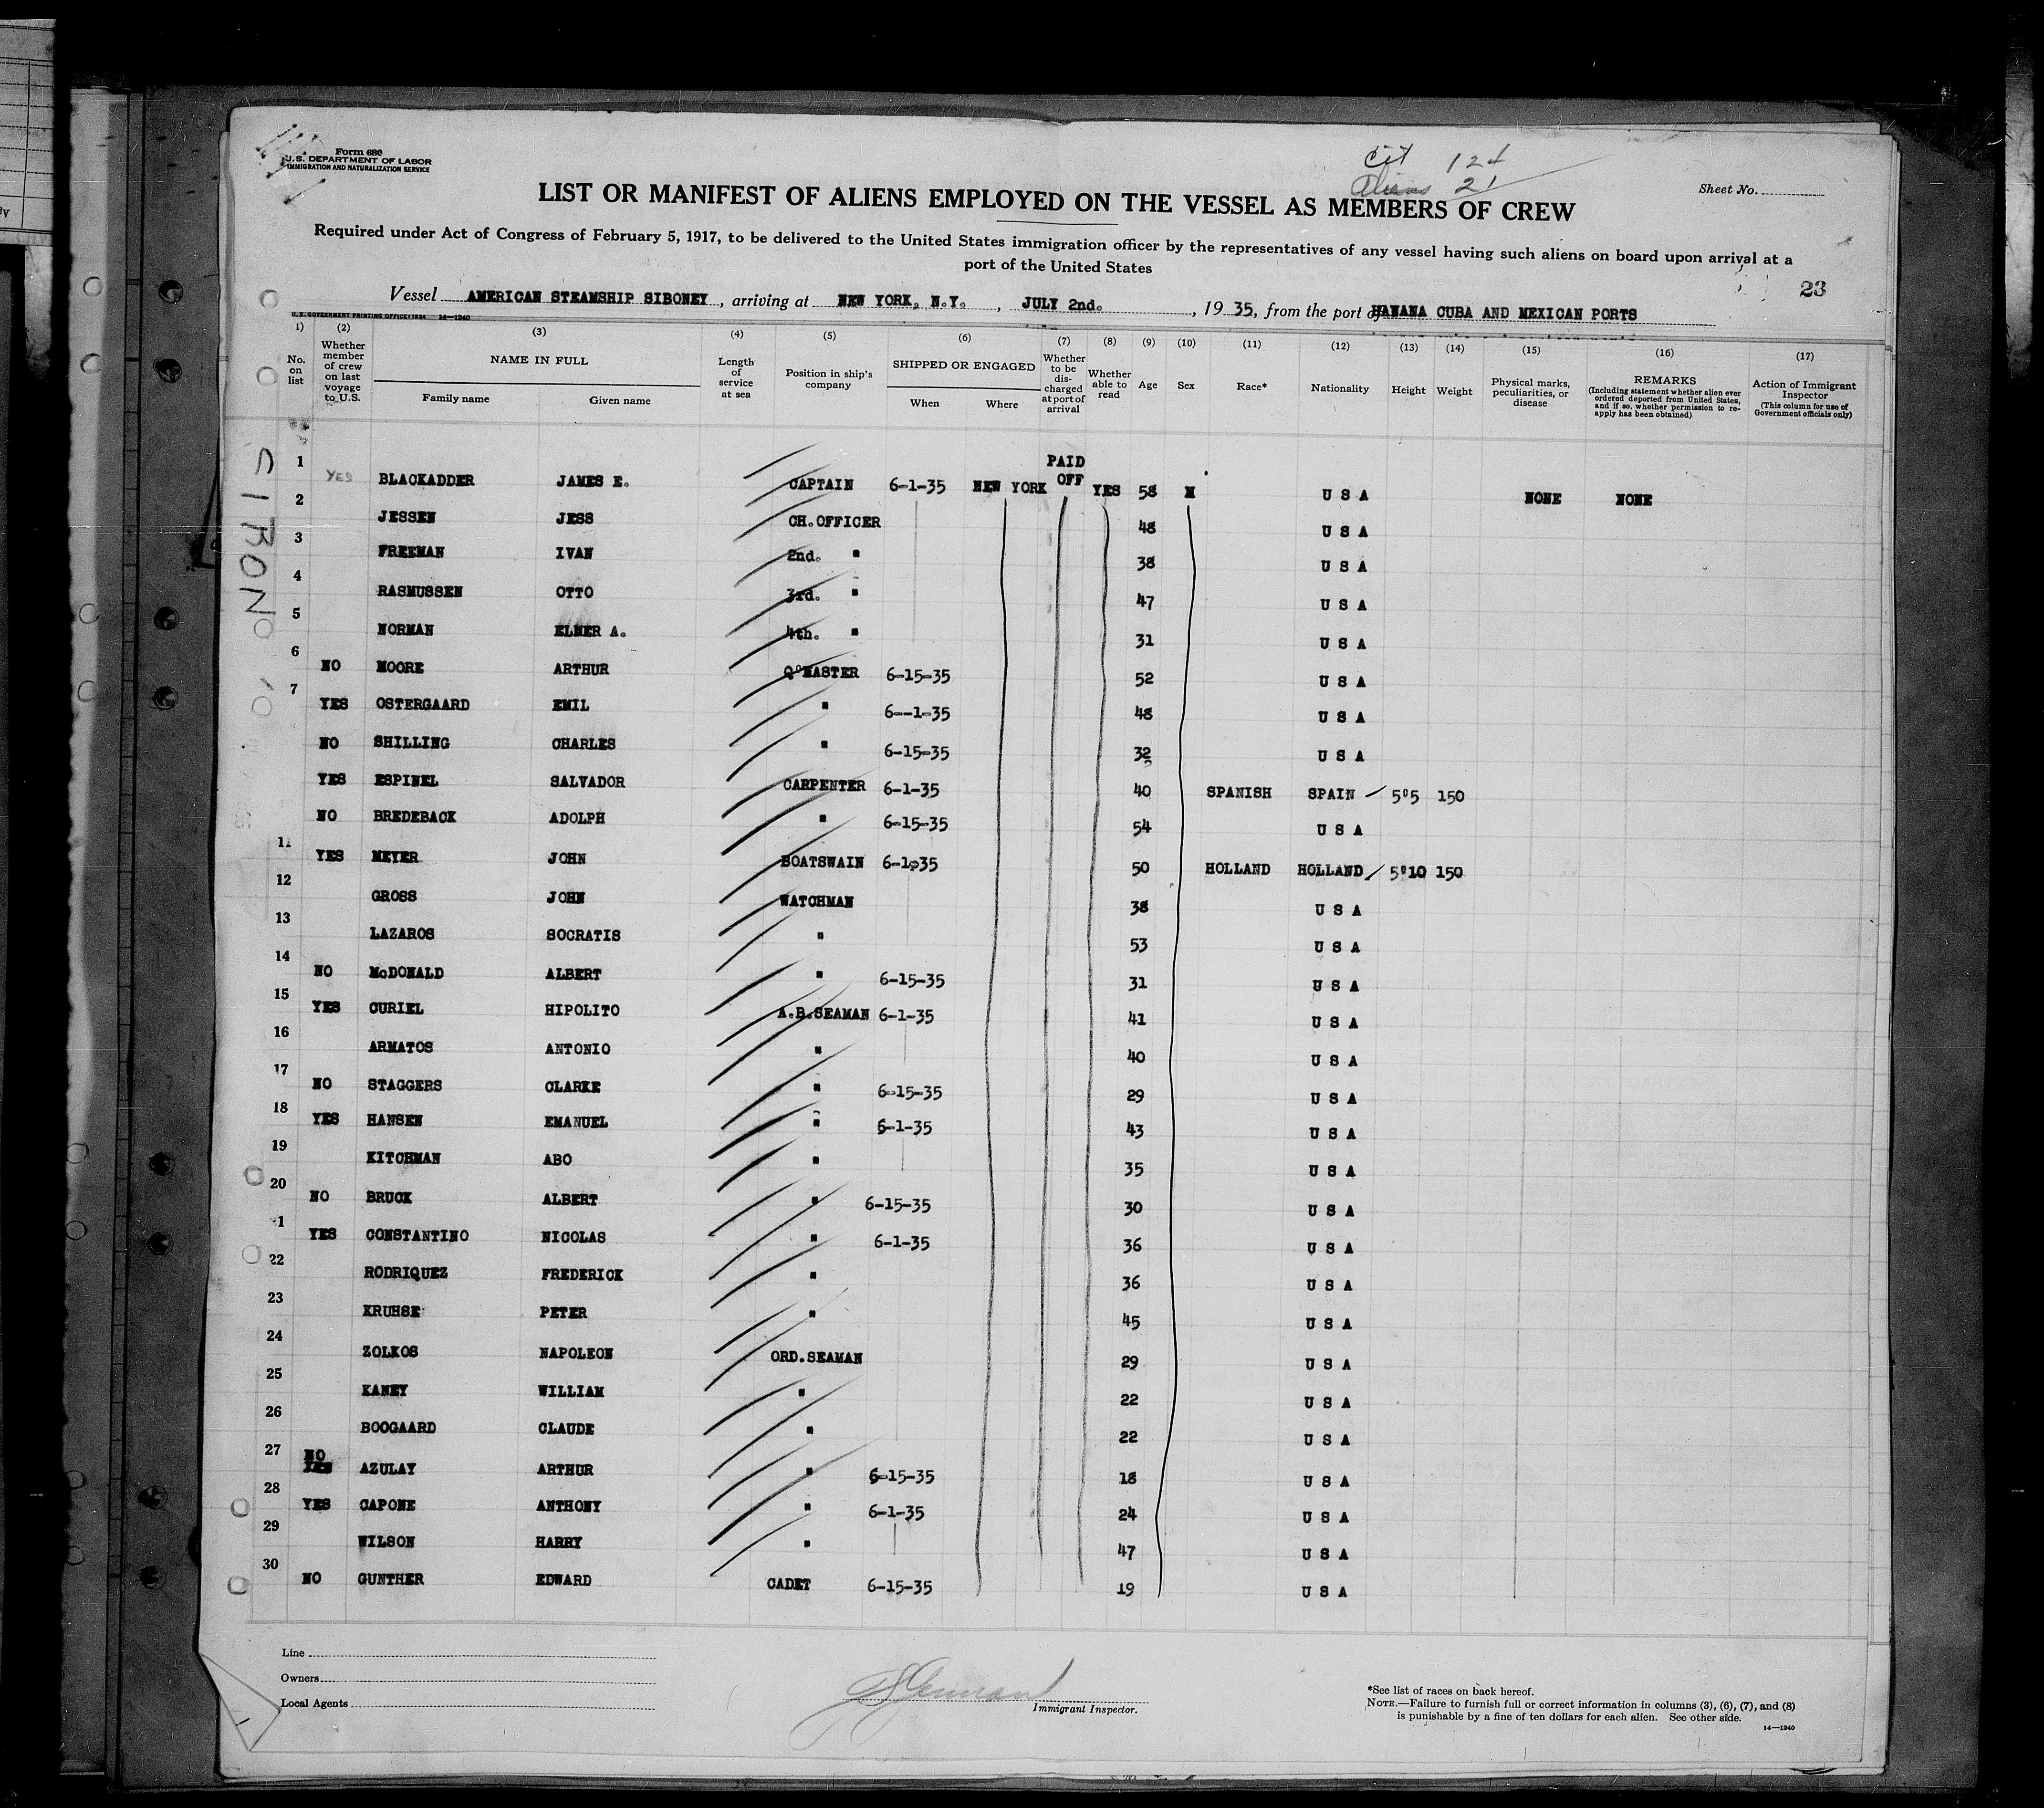 Form 680
U.S. DEPARTMENT OF LABOR
IMMIGRATION AND NATURALIZATION SERVICE
Cit 124
Aliens 21
Sheet No.
LIST OR MANIFEST OF ALIENS EMPLOYED ON THE VESSEL AS MEMBERS OF CREW
Required under Act of Congress of February 5, 1917, to be delivered to the United States immigration officer by the representatives of any vessel having such aliens on board upon arrival at a
port of the United States
23
Vessel AMERICAN STEAMSHIP SIBONEY, arriving at NEW YORK, N.Y., JULY 2nd., 1935, from the port of HAVANA CUBA AND MEXICAN PORTS
U.S. GOVERNMENT PRINTING OFFICE: 1934 14—1240
1) (2) (3) (4) (5) (6) (7) (8) (9) (10) (11) (12) (13) (14) (15) (16) (17)
No. on list
Whether member of crew on last voyage to U.S.
NAME IN FULL
Family name
Given name
Length of service at sea
Position in ship's company
SHIPPED OR ENGAGED
When
Where
Whether to be discharged at port of arrival
Whether able to read
Age
Sex
Race*
Nationality
Height
Weight
Physical marks, peculiarities, or disease
REMARKS
(Including statement whether alien ever ordered deported from United States, and if so, whether permission to reapply has been obtained)
Action of Immigrant Inspector
(This column for use of Government officials only)
1 YES BLACKADDER JAMES E. CAPTAIN 6-1-35 NEW YORK PAID OFF YES 58 M U S A NONE NONE
2 JESSEN JESS CH.OFFICER 48 U S A
3 FREEMAN IVAN 2nd. " 38 U S A
4 RASMUSSEN OTTO 3rd. " 47 U S A
5 NORMAN ELMER A. 4th. " 31 U S A
6 NO MOORE ARTHUR Q'MASTER 6-15-35 52 U S A
7 YES OSTERGAARD EMIL " 6--1-35 48 U S A
NO SHILLING CHARLES " 6-15-35 32 U S A
YES ESPINEL SALVADOR CARPENTER 6-1-35 40 SPANISH SPAIN 5'5 150
NO BREDEBACK ADOLPH " 6-15-35 54 U S A
11 YES MEYER JOHN BOATSWAIN 6-1-35 50 HOLLAND HOLLAND 5'10 150
12 GROSS JOHN WATCHMAN 38 U S A
13 LAZAROS SOCRATIS " 53 U S A
14 NO McDONALD ALBERT " 6-15-35 31 U S A
15 YES CURIEL HIPOLITO A.B.SEAMAN 6-1-35 41 U S A
16 ARMATOS ANTONIO " 40 U S A
17 NO STAGGERS CLARKE " 6-15-35 29 U S A
18 YES HANSEN EMANUEL " 6-1-35 43 U S A
19 KITCHMAN ABO " 35 U S A
20 NO BRUCK ALBERT " 6-15-35 30 U S A
1 YES CONSTANTINO NICOLAS " 6-1-35 36 U S A
22 RODRIQUEZ FREDERICK " 36 U S A
23 KRUHSE PETER " 45 U S A
24 ZOLKOS NAPOLEON ORD.SEAMAN 29 U S A
25 KANEY WILLIAM " 22 U S A
26 BOOGAARD CLAUDE " 22 U S A
27 NO YES AZULAY ARTHUR " 6-15-35 18 U S A
28 YES CAPONE ANTHONY " 6-1-35 24 U S A
29 WILSON HARRY " 47 U S A
30 NO GUNTHER EDWARD CADET 6-15-35 19 U S A
Line
Owners
Local Agents
Immigrant Inspector.
*See list of races on back hereof.
NOTE.—Failure to furnish full or correct information in columns (3), (6), (7), and (8)
is punishable by a fine of ten dollars for each alien. See other side.
14—1240